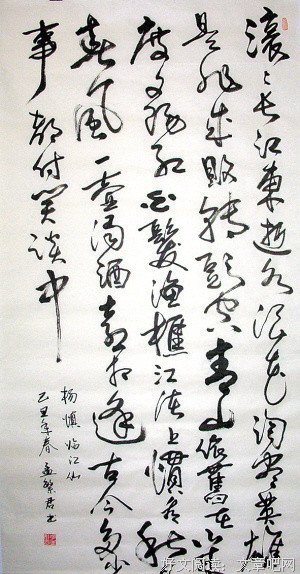 滚〻长江東逝水浪花淘尽英雄
是非成败转头空青山依舊在几
度夕阳红白髮渔樵江渚上惯看秋月
春风一壶濁酒喜相逢古今多少
事都付笑谈中
杨慎临江仙
己丑年春孟繁君书
好文阅读：文章吧网